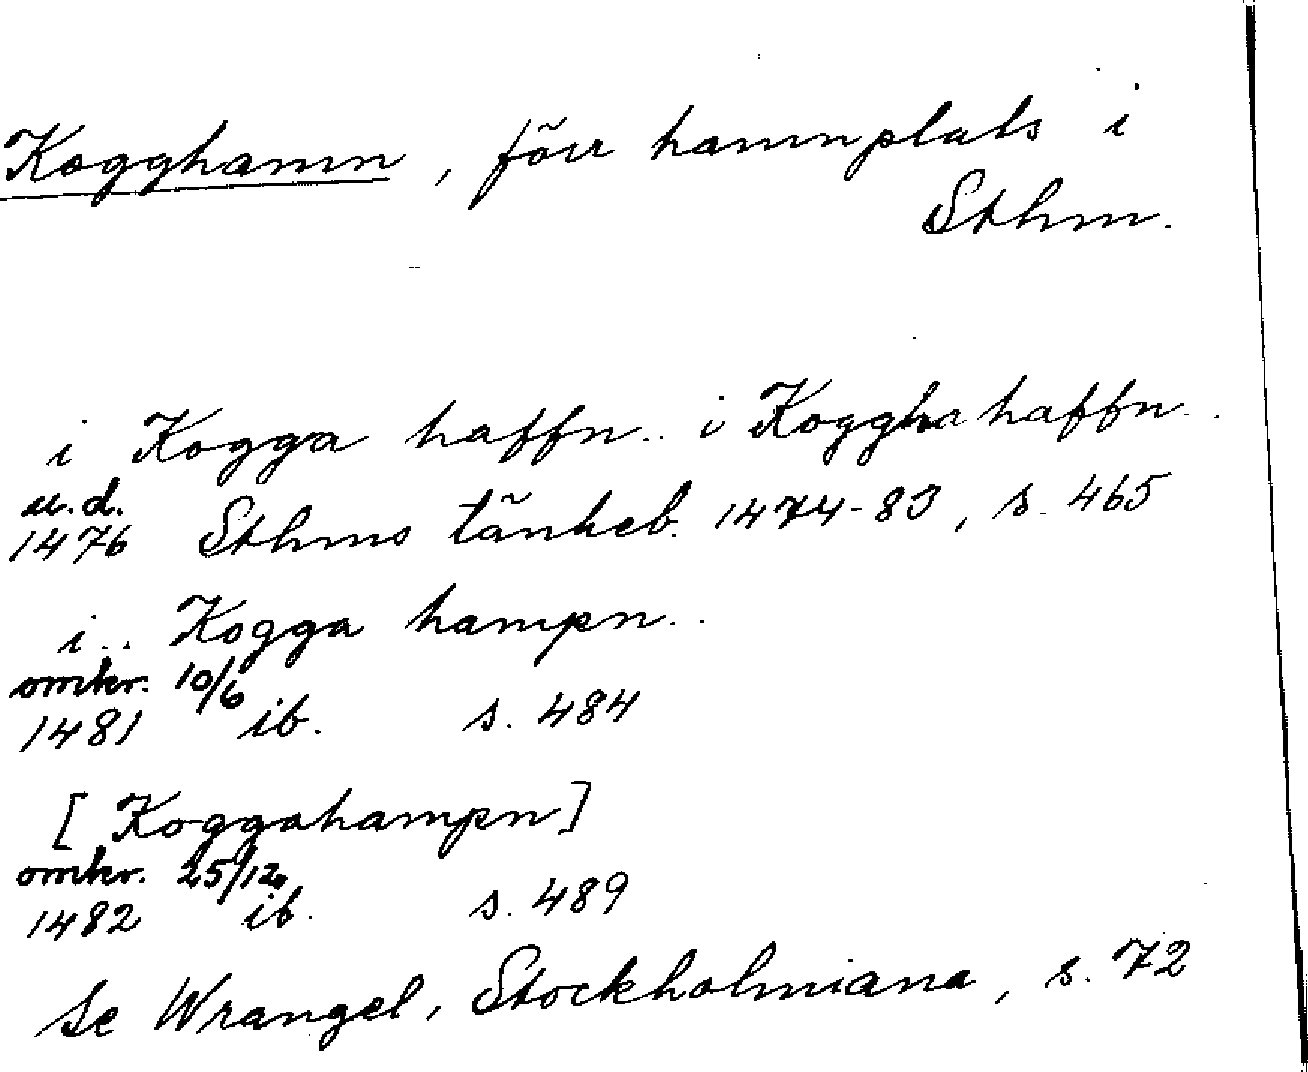 Kogghamn, förr hamnplats i
Sthm.
i Kogga haffn.. i Koggha haffn..
u.d.
1476 Sthms tänkeb. 1474-83, s. 465
i.. Kogga hampn..
omkr. 10/6
1481 ib. s. 484
[Koggahampn]
omkr. 25/12
1482 ib. s. 489
Se Wrangel, Stockholmiana, s. 72